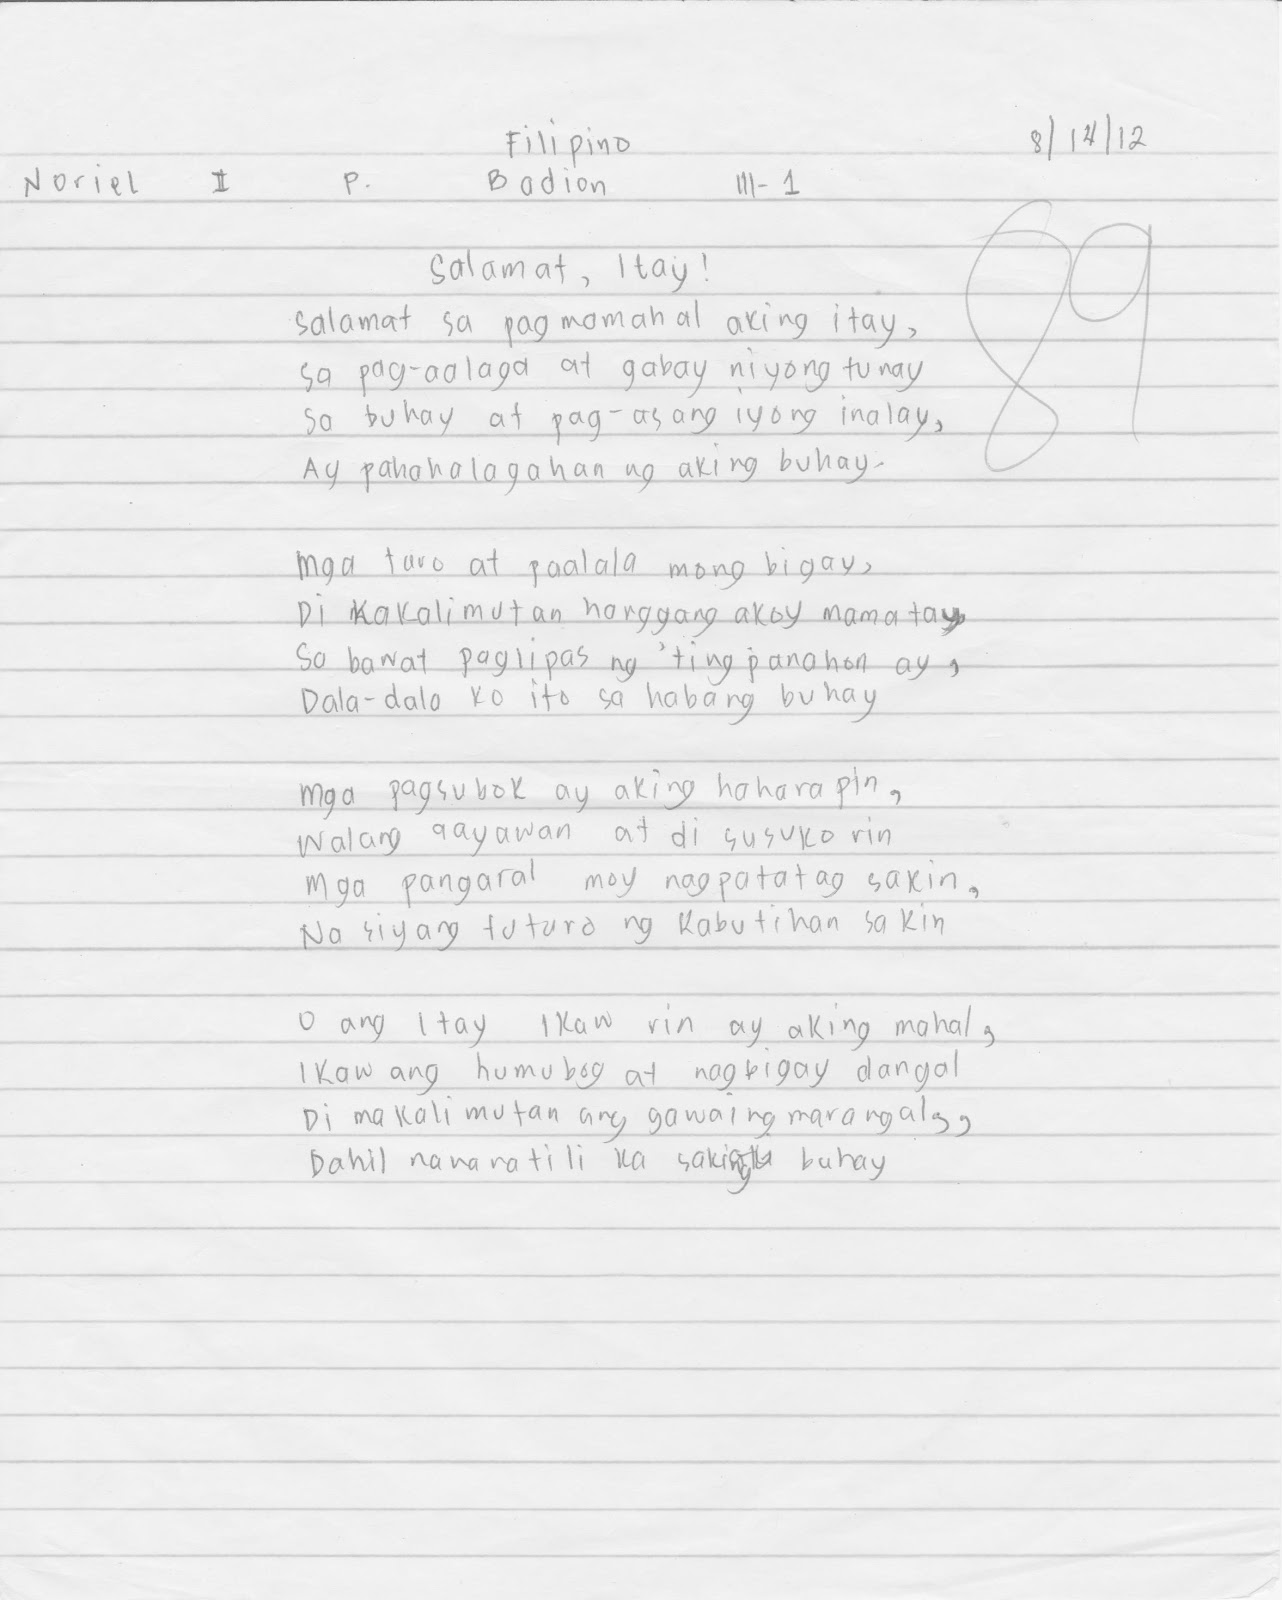 Filipino 8/14/12
Noriel II P. Badion III-1
89
Salamat, Itay!
Salamat sa pagmamahal aking itay,
Sa pag-aalaga at gabay niyong tunay
Sa buhay at pag-asang iyong inalay,
Ay pahahalagahan ng aking buhay.
Mga turo at paalala mong bigay,
Di kakalimutan hanggang akoy mamatay
Sa bawat paglipas ng 'ting panahon ay,
Dala-dala ko ito sa habang buhay
Mga pagsubok ay aking haharapin,
Walang aayawan at di susuko rin
Mga pangaral moy nagpatatag sakin,
Na siyang tuturo ng kabutihan sakin
O ang Itay Ikaw rin ay aking mahal,
Ikaw ang humubog at nagbigay dangal
Di makalimutan ang gawaing marangal,,
Dahil nanaratili ka buhay